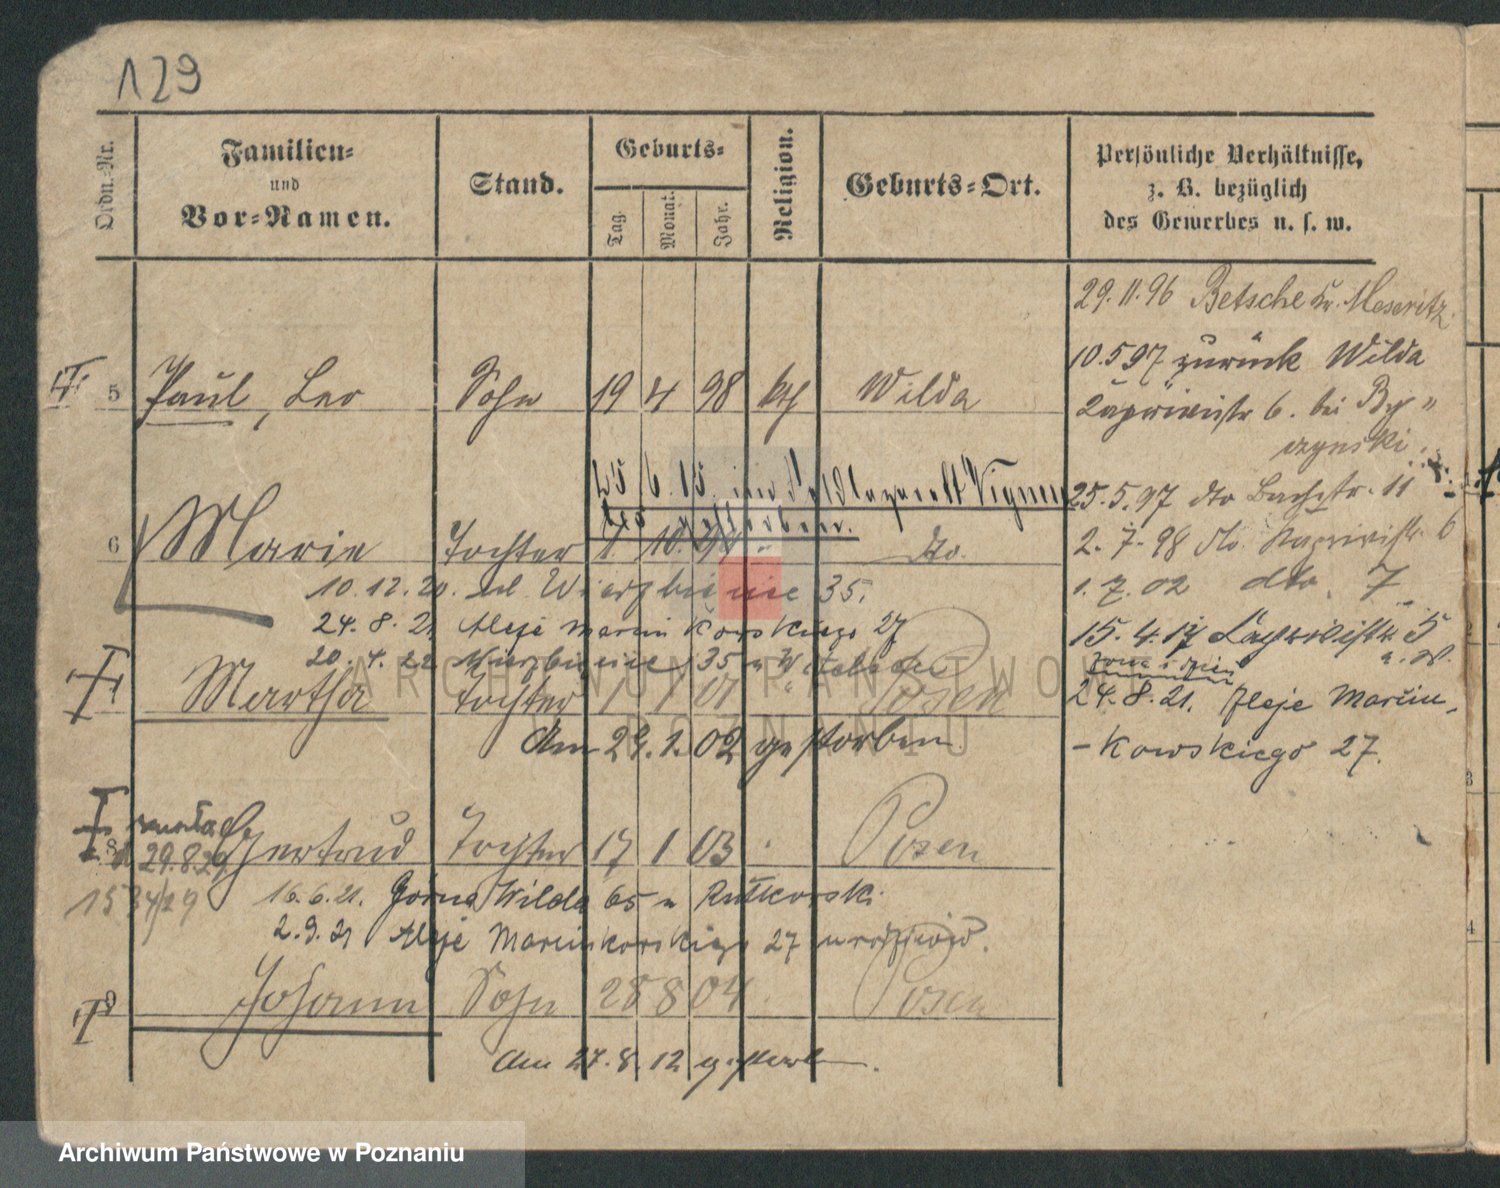 129
Ordn.-Nr.
Familien-
und
Vor-Namen.
Stand.
Geburts-
Tag.
Monat.
Jahr.
Religion.
Geburts-Ort.
Persönliche Verhältnisse,
z. B. bezüglich
des Gewerbes u. s. w.
29.11.96 Betsche Kr. Meseritz
10.5.97 zurück Wilda
5 Paul, Leo Sohn 19 4 98 kth Wilda
6. bei
25 6. 15. im Feldlazarett
gestorben.
25.5.97 dto Bachstr. 11
6 Marie Tochter 1 10. dto.
2. 7. 98 dto. 6
10.12.20. 35.
1. 7. 02 dto. 7
24. 8. 21 Aleje Marcinkowskiego 27
15. 4. 17 5
20. 4. 22 35
Martha Tochter 1 1 01 Posen
24.8.21. Aleje Marcin-
Am 29.1.02 gestorben.
-kowskiego 27.
8 zmarła Gertrud Tochter 17 1 03 Posen
29.8.29
1534/29
16.6.21. Górna Wilda 65 u Rutkowski
2.9.21 Aleje Marcinkowskiego 27
9 Johann Sohn 28 8 04 Posen
Am 27.8.12 gestorben.
2
3
4
ARCHIWUM PAŃSTWOWE
W POZNANIU
Archiwum Państwowe w Poznaniu